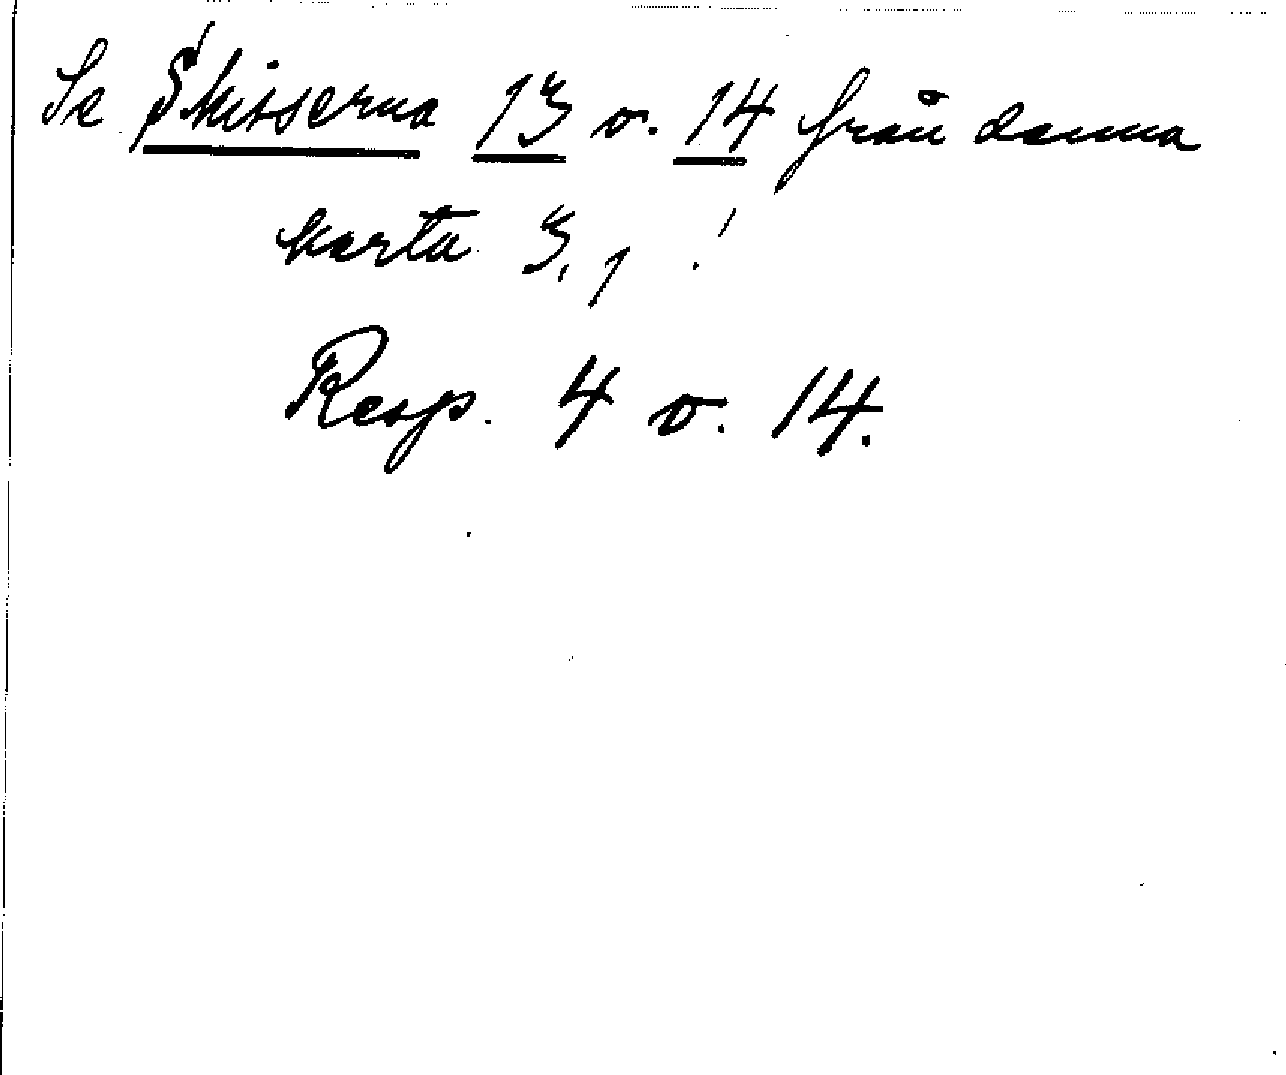 Se Skisserna 13 o. 14 från denna
karta 3,1 !
Resp. 4 o. 14.